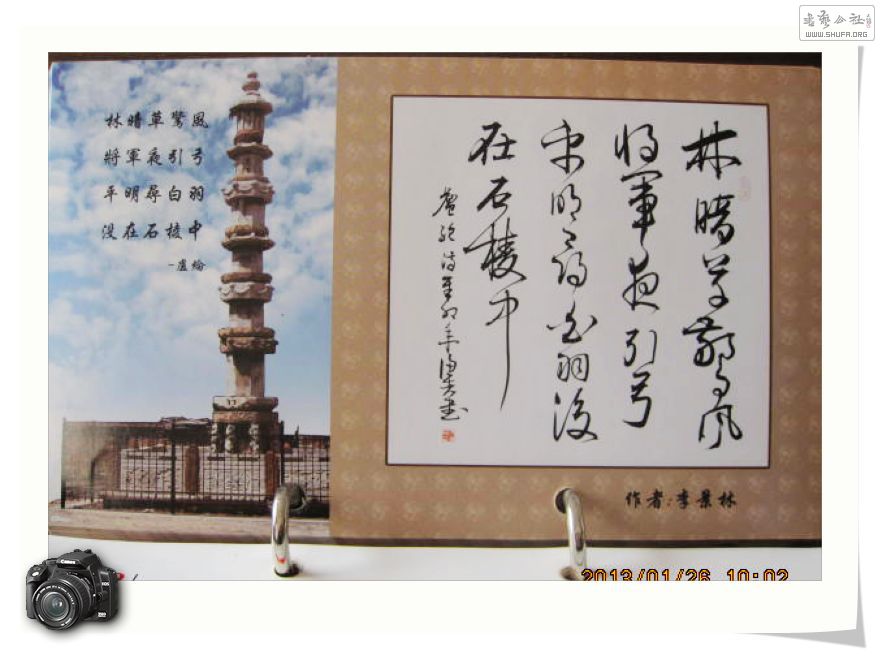 书艺公社
WWW.SHUFA.ORG
林暗草驚風
將軍夜引弓
平明尋白羽
没在石棱中
-盧綸
林暗草驚風
将軍夜引弓
平明尋白羽没
在石棱中
盧綸詩辛卯年
書
作者:李景林
2013/01/26 10:02
Canon
EOS